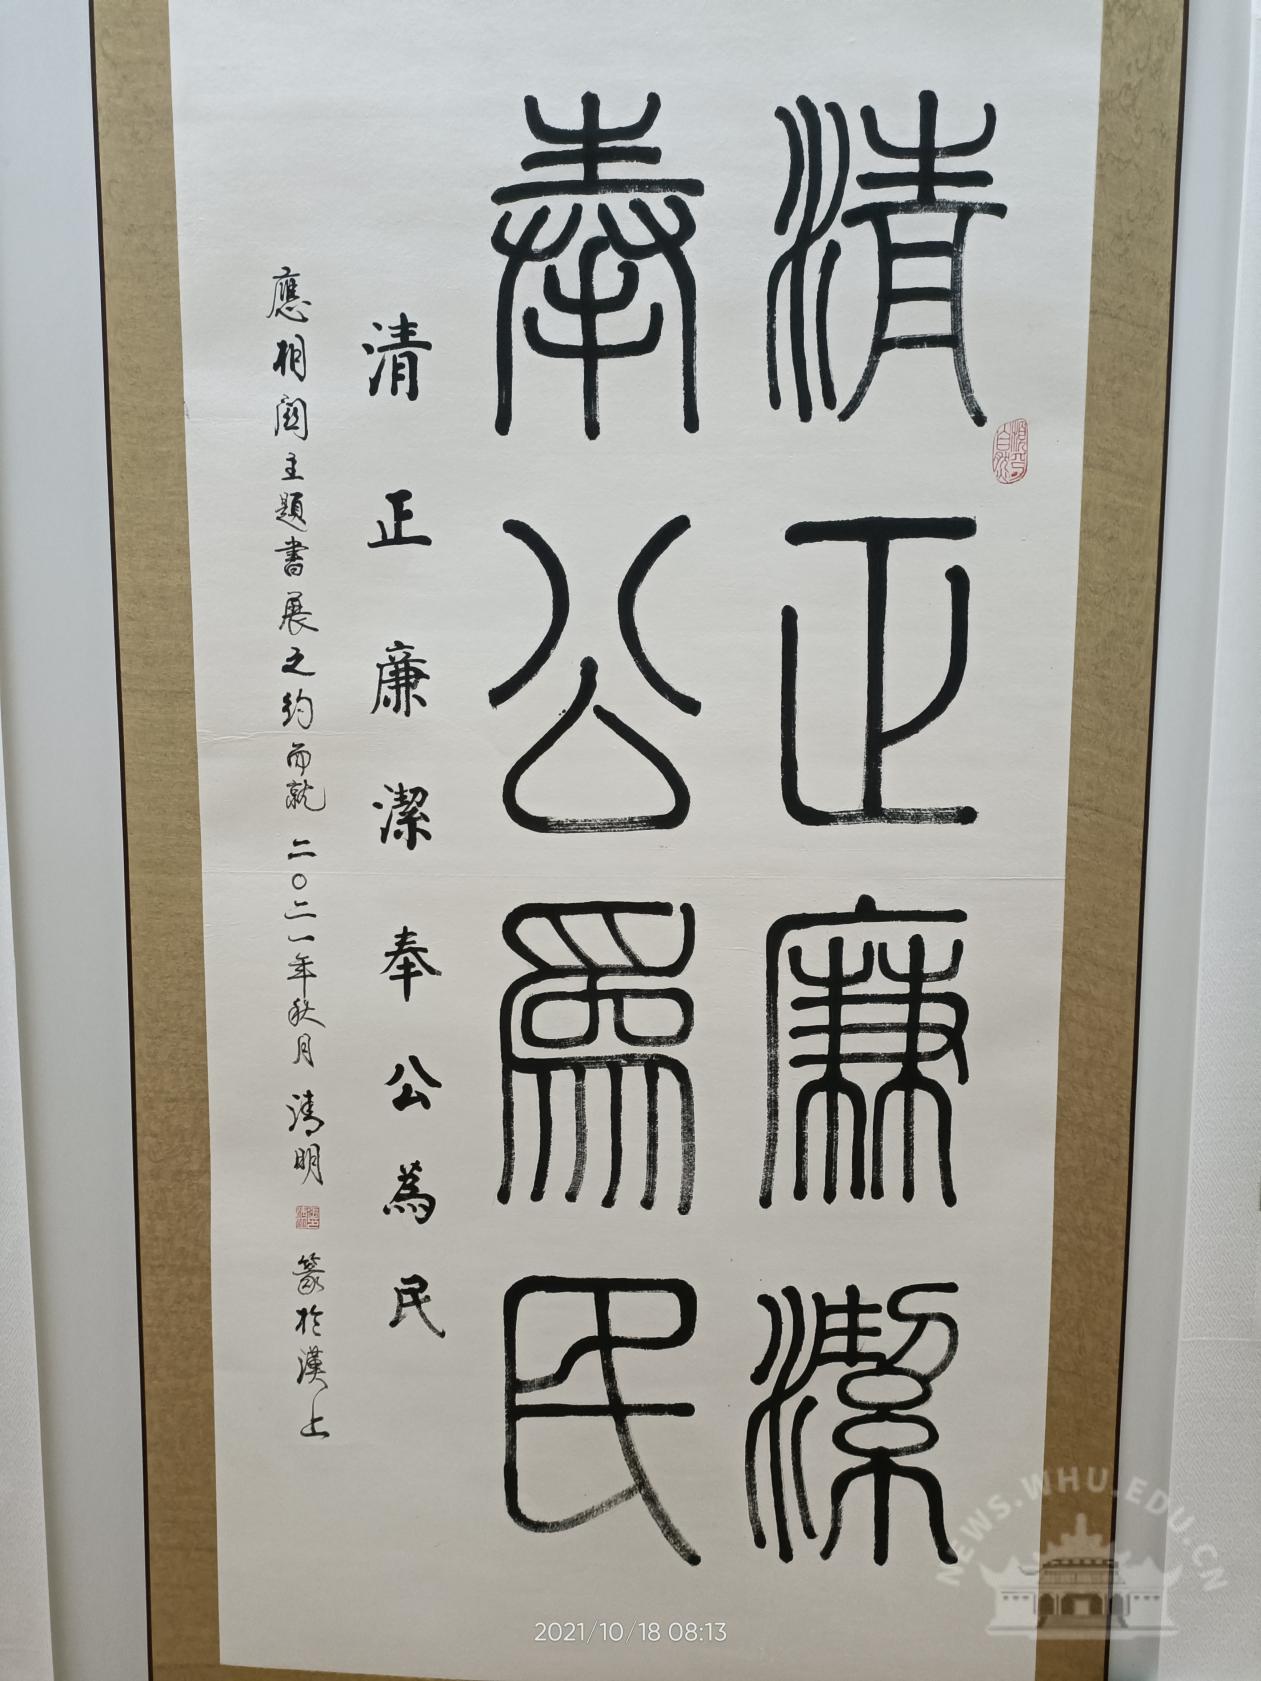 清正廉潔
奉公為民
清正廉潔奉公為民
應相關主題書展之約而就 二〇二一年秋月 清明 篆於漢上
2021/10/18 08:13
NEWS.WHU.EDU.CN